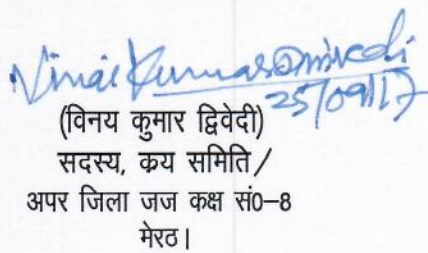 Vinai Kumar Dwivedi
25/09/17
(विनय कुमार द्विवेदी)
सदस्य, क्रय समिति /
अपर जिला जज कक्ष सं0-8
मेरठ।